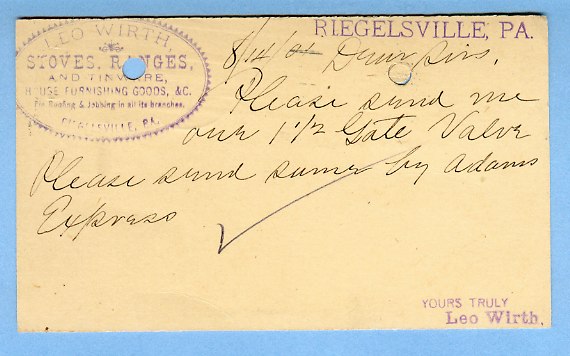 LEO WIRTH,
STOVES, RANGES,
AND TINWARE,
HOUSE FURNISHING GOODS, &C.
Tin Roofing & Jobbing in all its branches.
RIEGELSVILLE, PA.
RIEGELSVILLE, PA.
8/14/01 Dear Sirs,
Please send me
one 1 1/2 Gate Valve
Please send same by Adams
Express
YOURS TRULY
Leo Wirth.